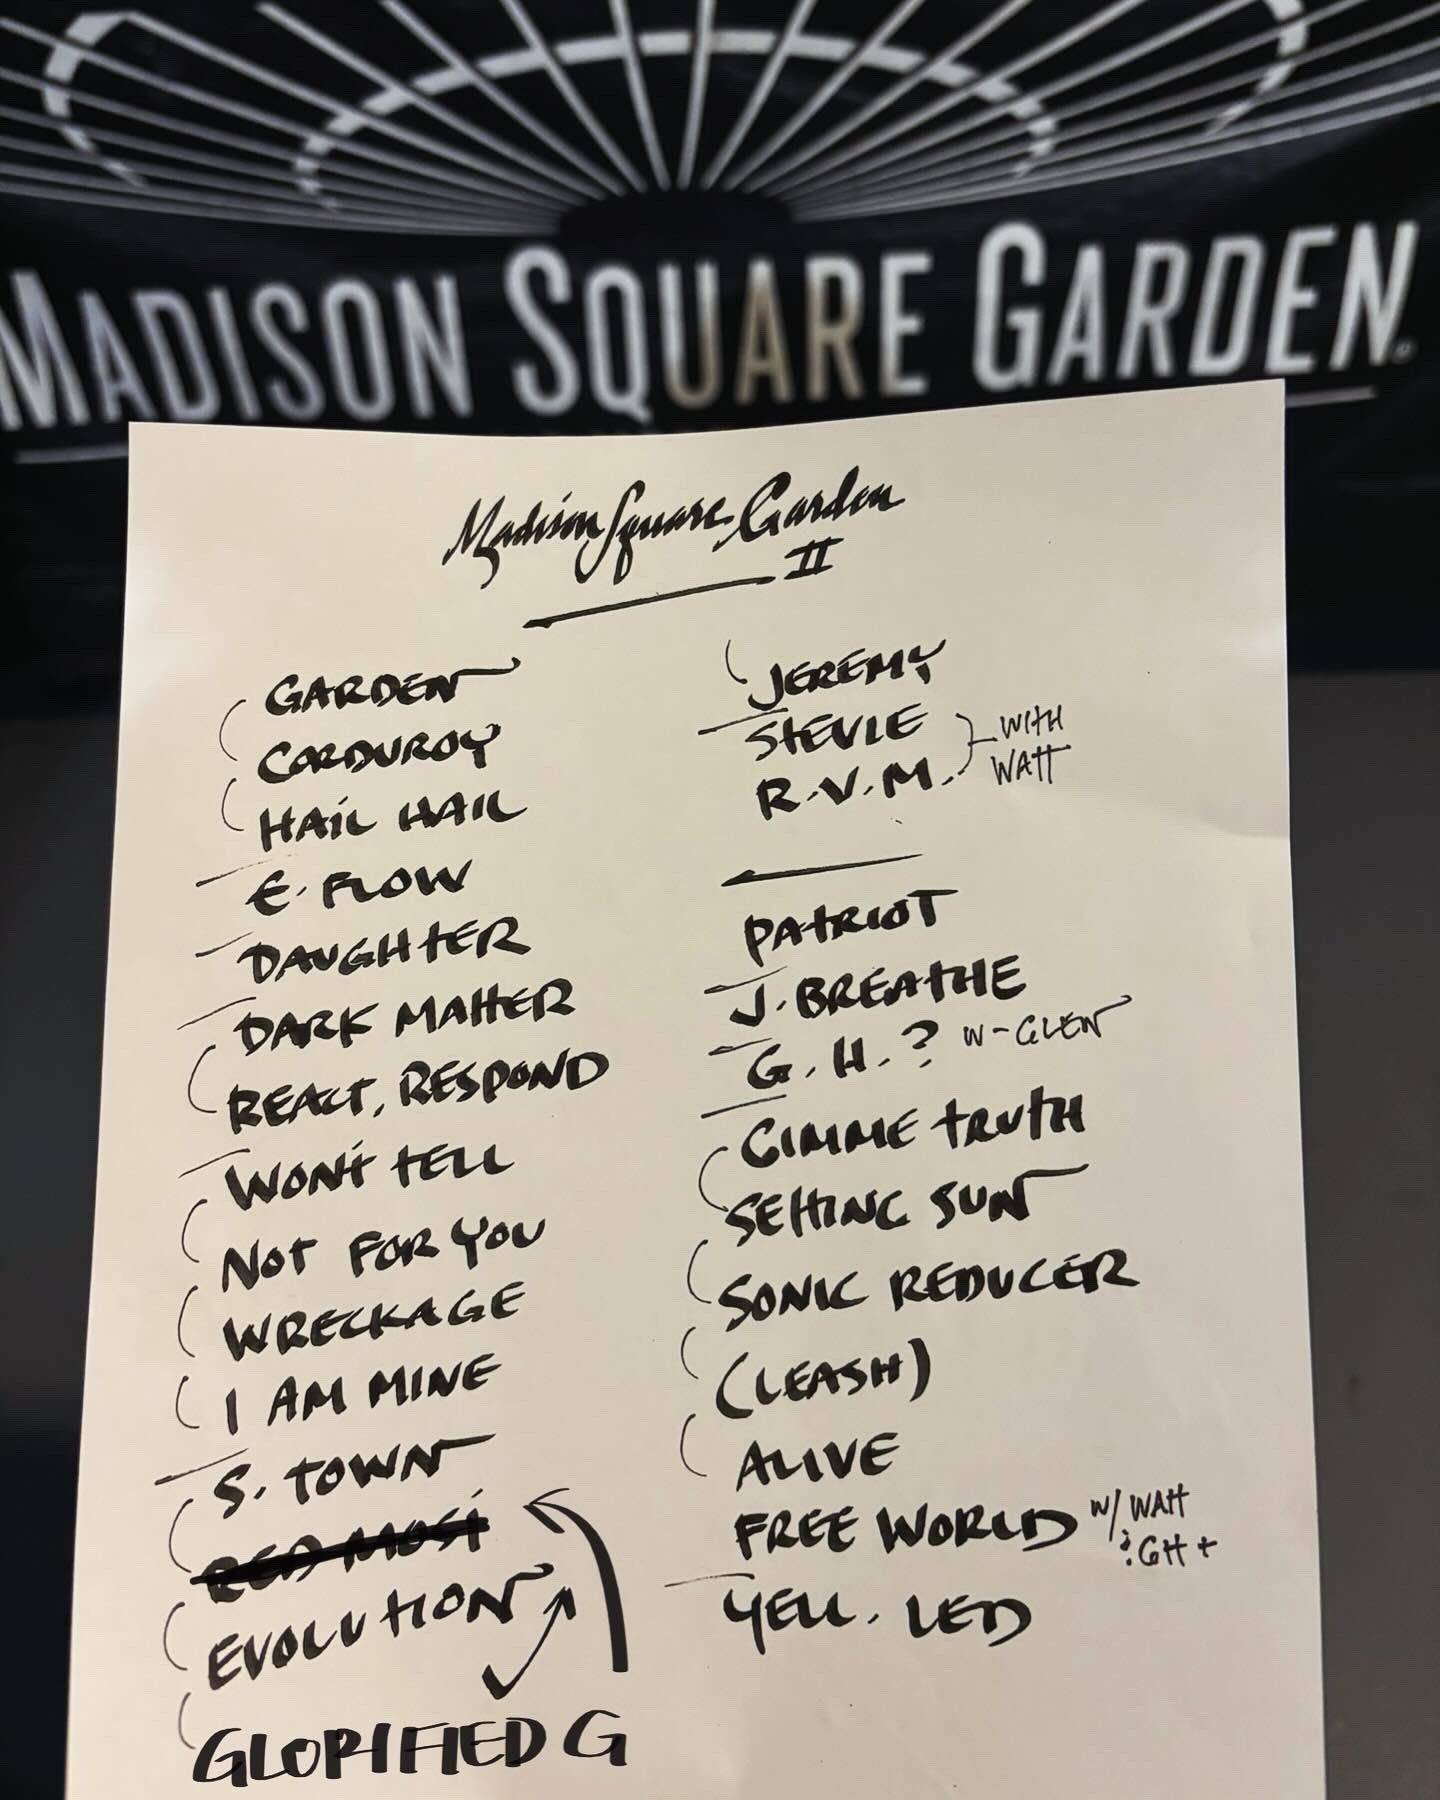 MADISON SQUARE GARDEN
Madison Square Garden
II
GARDEN
CORDUROY
HAIL HAIL
E. FLOW
DAUGHTER
DARK MATTER
REACT, RESPOND
WON'T TELL
NOT FOR YOU
WRECKAGE
I AM MINE
S. TOWN
RED MOSJ
EVOLUTION
GLORIFIED G
JEREMY
STEVIE
R.V.M.
WITH
WATT
PATRIOT
J. BREATHE
G. H. ? W-GLEN
GIMME TRUTH
SETTING SUN
SONIC REDUCER
(LEASH)
ALIVE
FREE WORLD W/ WATT
? GH +
YELL. LED